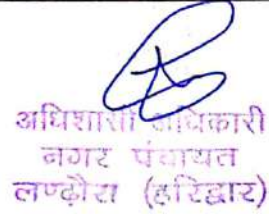 अधिशासी अधिकारी
नगर पंचायत
लण्ढौरा (हरिद्वार)